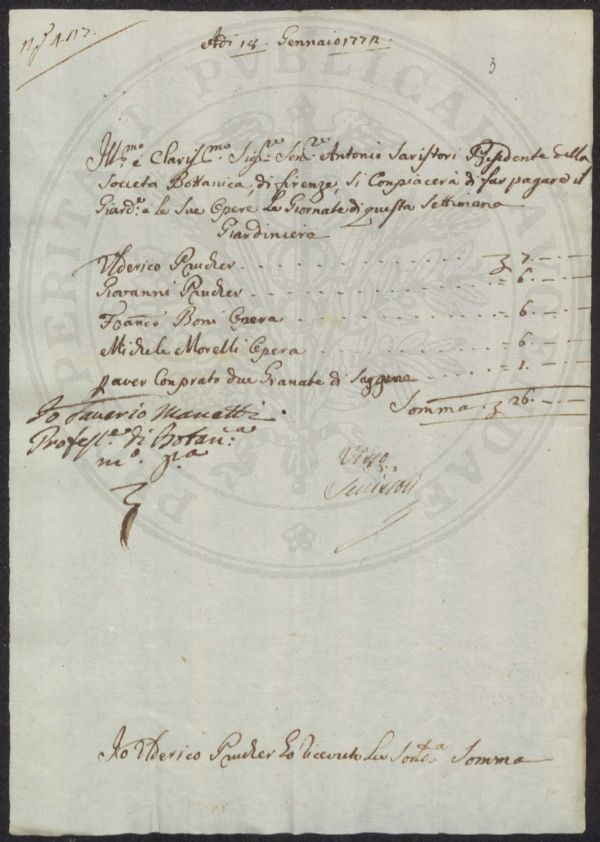 Adi 18. Gennaio 1772.
3
Ill.mo e Claris.mo Sig.re Sen.re Antonio Saristori Presidente della
Societa Bottanica di firenze, si Conpiacerà di far pagare il
Giard.re e le Sue Opere Le Giornate di questa Settimana
Giardiniere
Uderico Prucker 7. — —
Giovanni Prucker 6. — —
Franco Boni Opera 6. — —
Michele Morelli Opera 6. — —
paver Conprato due Granate di Saggina 1. — —
Somma 26. — —
Io Saverio Manetti
Profess.re di Botan.ca
m.o p.a
Visto
Io Uderico Prucker ho riceuto La Sud.a Somma
PERITAT PUBLICAE